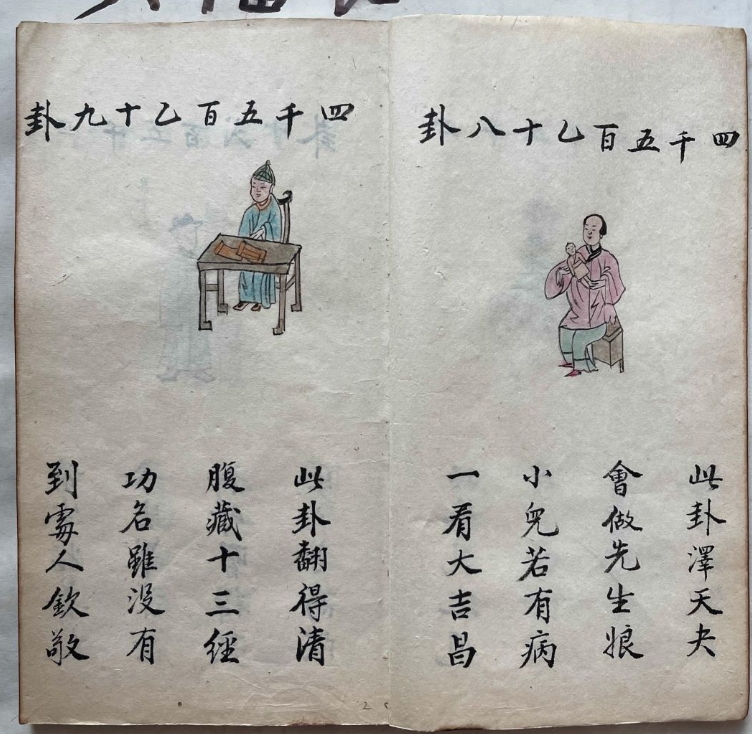 四千五百乙十八卦
此卦澤天夬
會做先生娘
小兒若有病
一看大吉昌
四千五百乙十九卦
此卦翻得清
腹藏十三經
功名雖没有
到處人欽敬